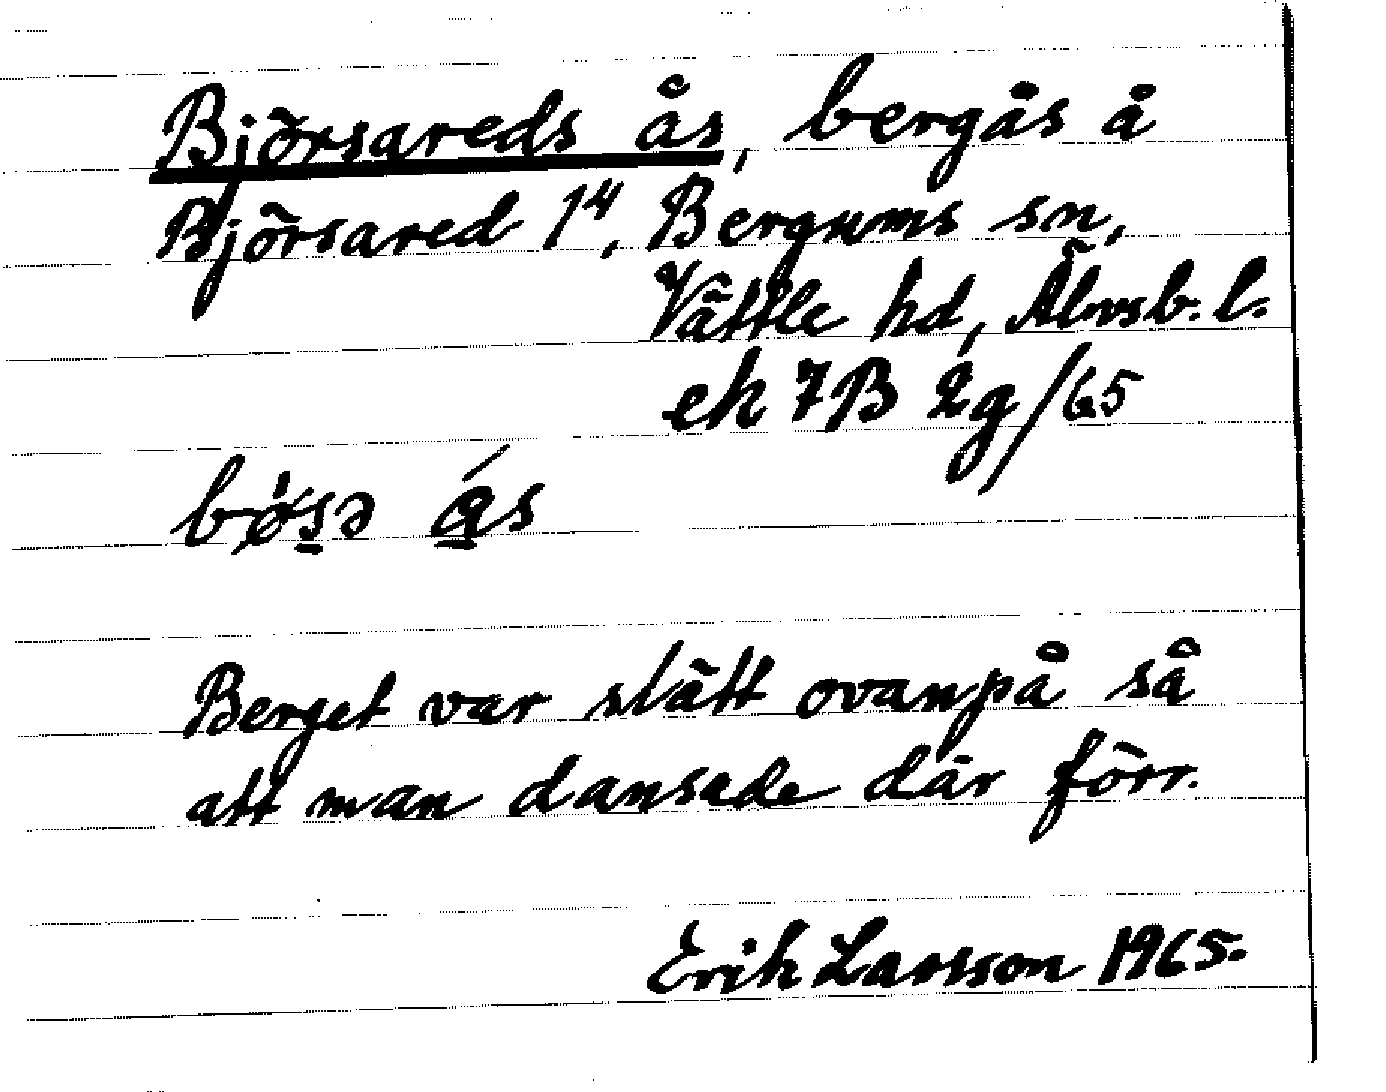 Björsareds ås, bergås å
Björsared 1⁴, Bergums sn,
Vättle hd, Älvsb. l.
ek 7B 2g/65
bø̀s̱ə á̱s
Berget var slätt ovanpå så
att man dansade där förr.
Erik Larsson 1965.